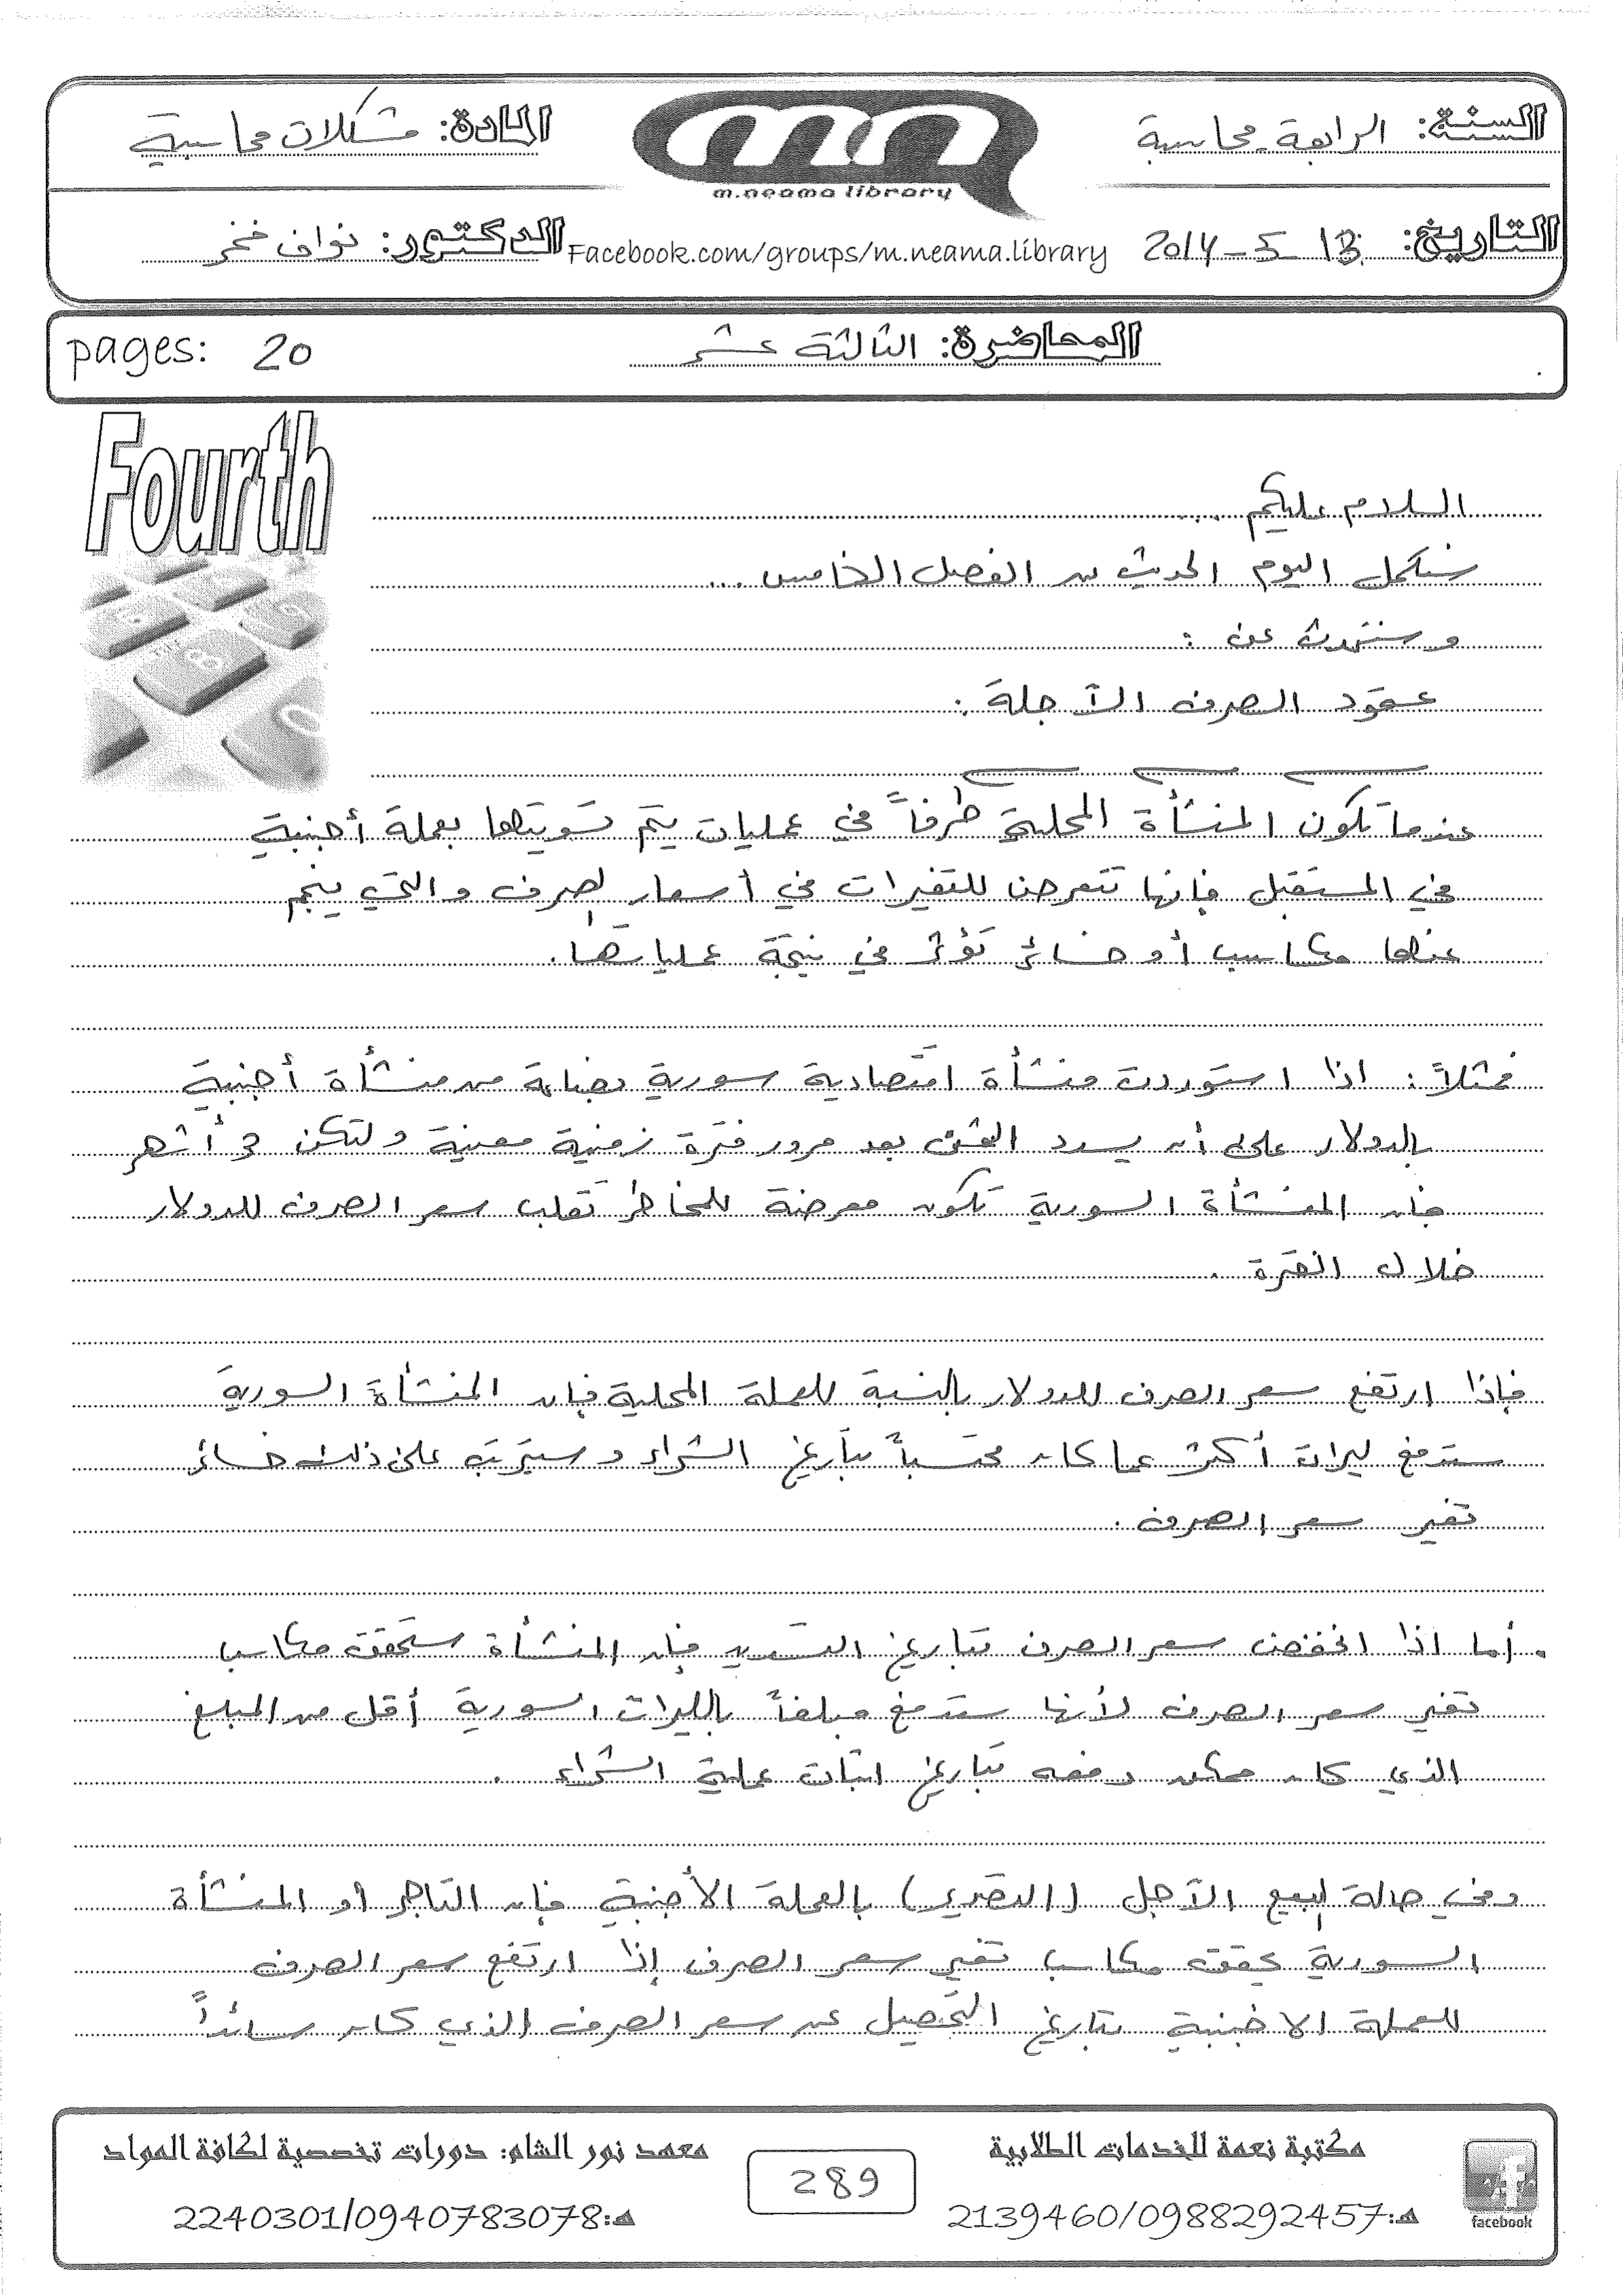 السنة: الرابعة محاسبة
المادة: مشكلات محاسبية
m.neama library
التاريخ: 13-5-2014
Facebook.com/groups/m.neama.library
الدكتور: نواف فخر
المحاضرة: الثالثة عشر
pages: 20
Fourth
السلام عليكم ...
سنكمل اليوم الحديث من الفصل الخامس ...
و سنتحدث عن :
عقود الصرف الآجلة :
عندما تكون المنشأة المحلية طرفاً في عمليات يتم تسويتها بعملة أجنبية
في المستقبل فإنها تتعرض للتغيرات في أسعار الصرف والتي ينجم
عنها مكاسب أو خسائر تؤثر في نتيجة عملياتها.
فمثلاً : اذا استوردت منشأة اقتصادية سورية بضاعة من منشأة أجنبية
بالدولار على أن يسدد الثمن بعد مرور فترة زمنية معينة ولتكن 3 أشهر
فإن المنشأة السورية تكون معرضة لمخاطر تقلب سعر الصرف للدولار
خلال الفترة .
فإذا ارتفع سعر الصرف للدولار بالنسبة للعملة المحلية فإن المنشأة السورية
ستدفع ليرات أكثر عما كان محتسباً بتاريخ الشراء وسيترتب على ذلك خسائر
تغير سعر الصرف .
. أما اذا انخفض سعر الصرف بتاريخ التسديد فإن المنشأة ستحقق مكاسب
تغير سعر الصرف لأنها ستدفع مبلغاً بالليرات السورية أقل من المبلغ
الذي كان ممكن دفعه بتاريخ اثبات عملية الشراء .
وفي حالة البيع الآجل (التصدير) بالعملة الأجنبية فإن التاجر أو المنشأة
السورية يحقق مكاسب تغير سعر الصرف إذا ارتفع سعر الصرف
للعملة الاجنبية بتاريخ التحصيل عن سعر الصرف الذي كان سائداً
مكتبة نعمة للخدمات الطلابية
هـ:2139460/0988292457
facebook
289
معهد نور الشام: دورات تخصصية لكافة المواد
هـ:2240301/0940783078